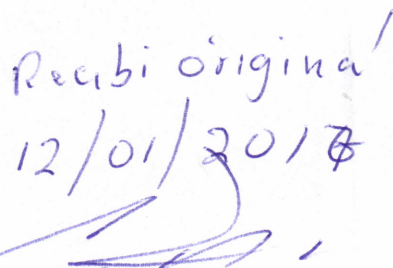 Recibi original
12/01/2017